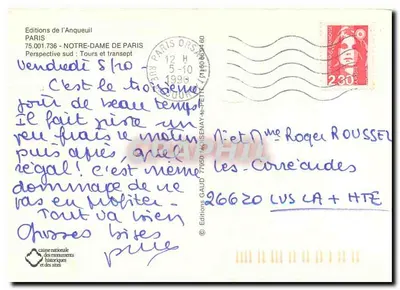 Editions de l'Anqueuil
PARIS
75.001.736 - NOTRE-DAME DE PARIS
Perspective sud : Tours et transept
PARIS ORSAY
12 H
5-10
1990
2,30
Vendredi 5/10.
C'est le troisième
jour de beau temps
Il fait juste un
peu frais le matin
puis après, quel
régal ! C'est même
dommage de ne
pas en profiter.
Tout va bien
Grosses bises
M. et Mme Roger ROUSSEL
Les Corréardes
26620 LUS LA + HTE
© Editions GAUD 77950
caisse nationale
des monuments
historiques
et des sites